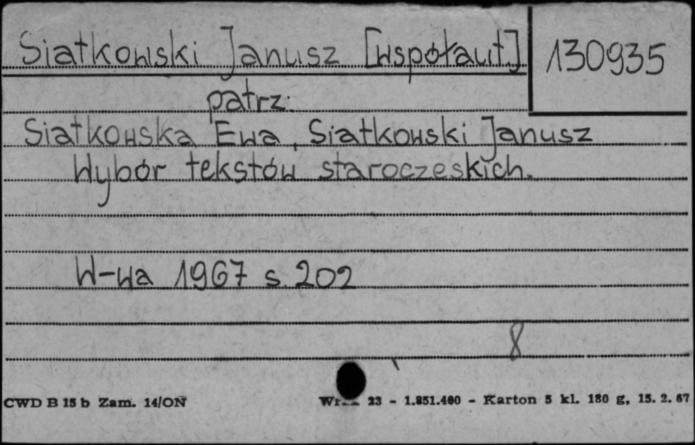 Siatkowski Janusz [współaut.] 130935
patrz:
Siatkowska Ewa, Siatkowski Janusz
Wybór tekstów staroczeskich.
W-wa 1967 s. 202
8
CWD B 15 b Zam. 14/ON 23 - 1.851.400 - Karton 5 kl. 180 g, 15. 2. 67